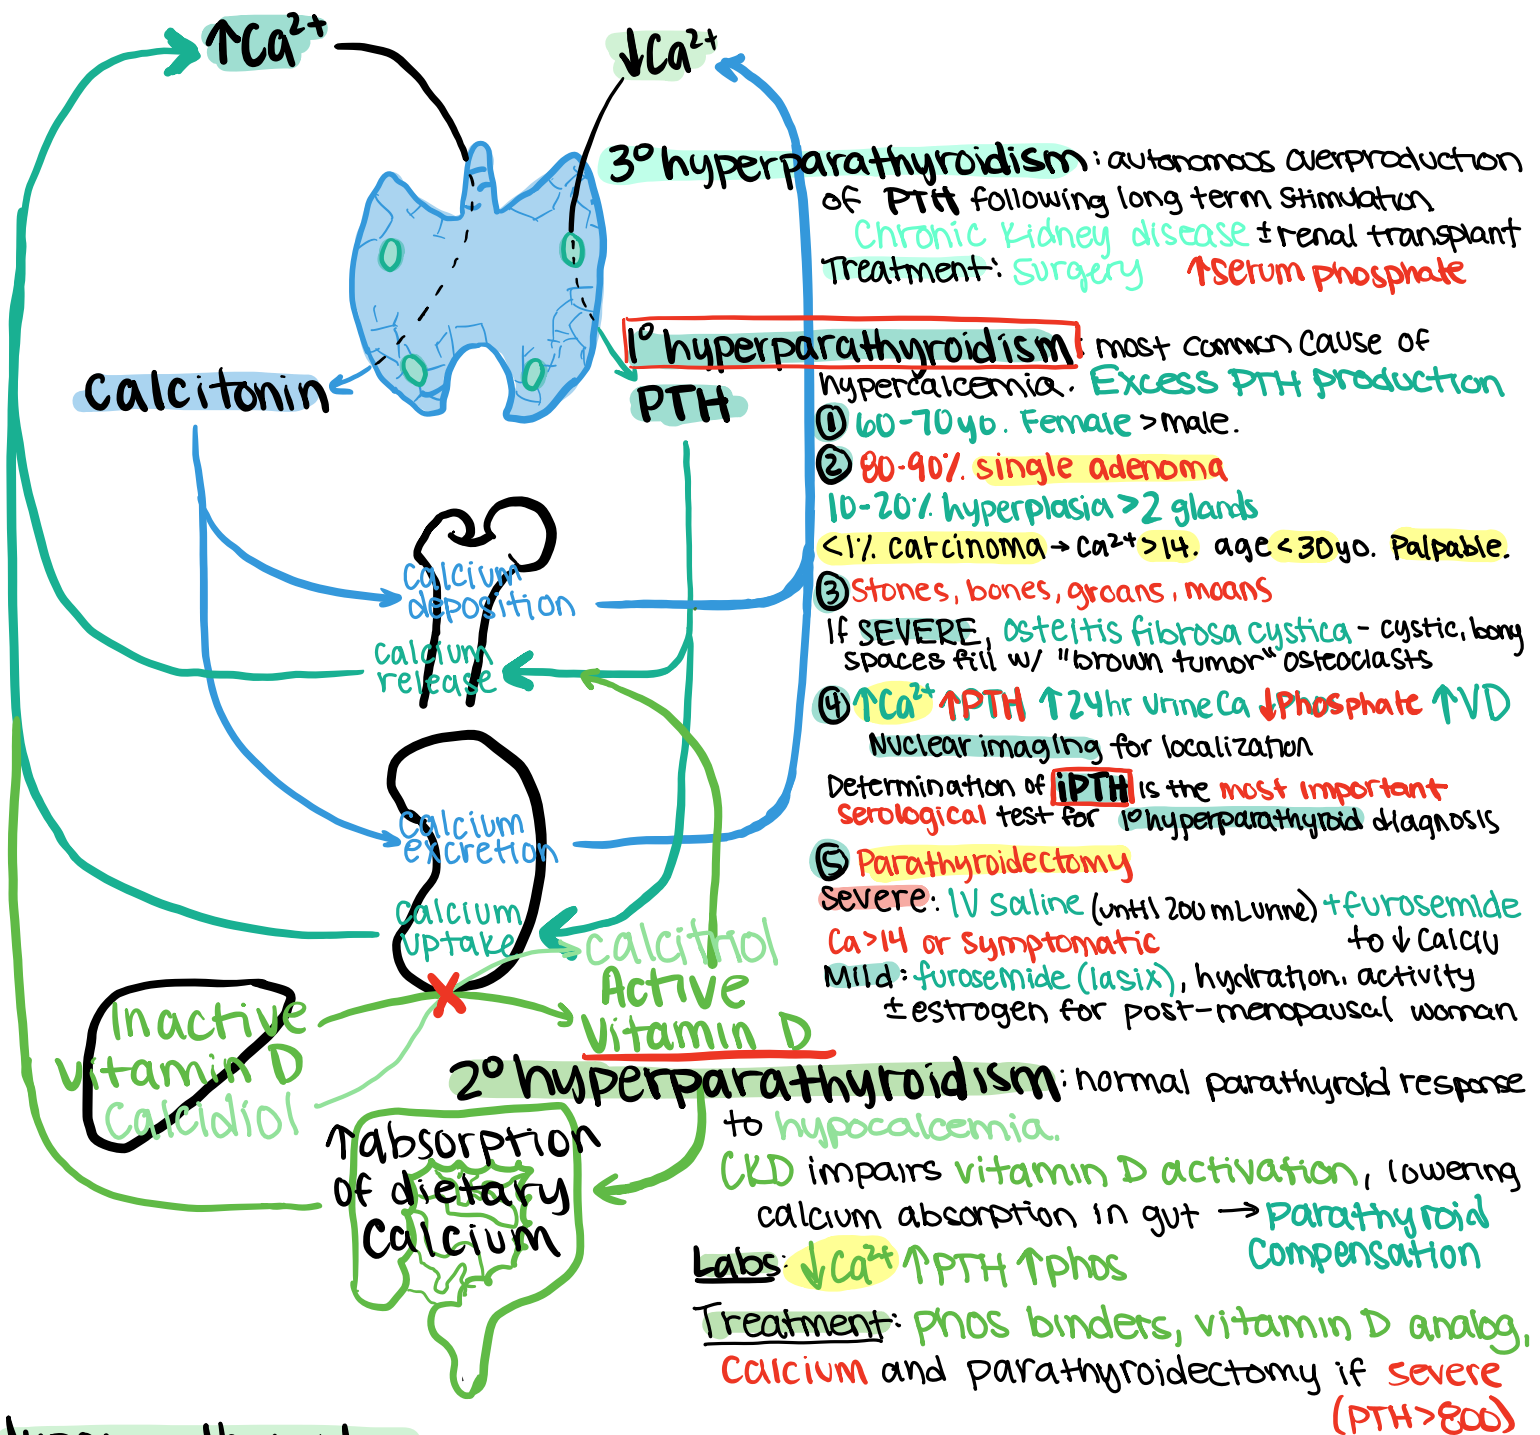 ↑Ca²⁺
↓Ca²⁺
Calcitonin
PTH
calcium
deposition
calcium
release
calcium
excretion
calcium
uptake
calcitriol
Active
vitamin D
Inactive
vitamin D
Calcidiol
↑absorption
of dietary
calcium
3° hyperparathyroidism: autonomous overproduction
of PTH following long term stimulation
Chronic kidney disease ± renal transplant
Treatment: surgery ↑serum phosphate
1° hyperparathyroidism: most common cause of
hypercalcemia. Excess PTH production
① 60-70 yo. Female > male.
② 80-90% single adenoma
10-20% hyperplasia >2 glands
<1% carcinoma → Ca²⁺ >14. age <30yo. Palpable.
③ Stones, bones, groans, moans
If SEVERE, osteitis fibrosa cystica - cystic, bony
spaces fill w/ "brown tumor" osteoclasts
④ ↑Ca²⁺ ↑PTH ↑24hr urine Ca ↓Phosphate ↑VD
Nuclear imaging for localization
Determination of iPTH is the most important
serological test for 1° hyperparathyroid diagnosis
⑤ Parathyroidectomy
Severe: IV saline (until 200 mL urine) + furosemide
Ca>14 or symptomatic to ↓ calciu
Mild: furosemide (lasix), hydration, activity
± estrogen for post-menopausal woman
2° hyperparathyroidism: normal parathyroid response
to hypocalcemia.
CKD impairs vitamin D activation, lowering
calcium absorption in gut → parathyroid
compensation
Labs: ↓Ca²⁺ ↑PTH ↑phos
Treatment: phos binders, vitamin D analog,
calcium and parathyroidectomy if severe
(PTH>800)